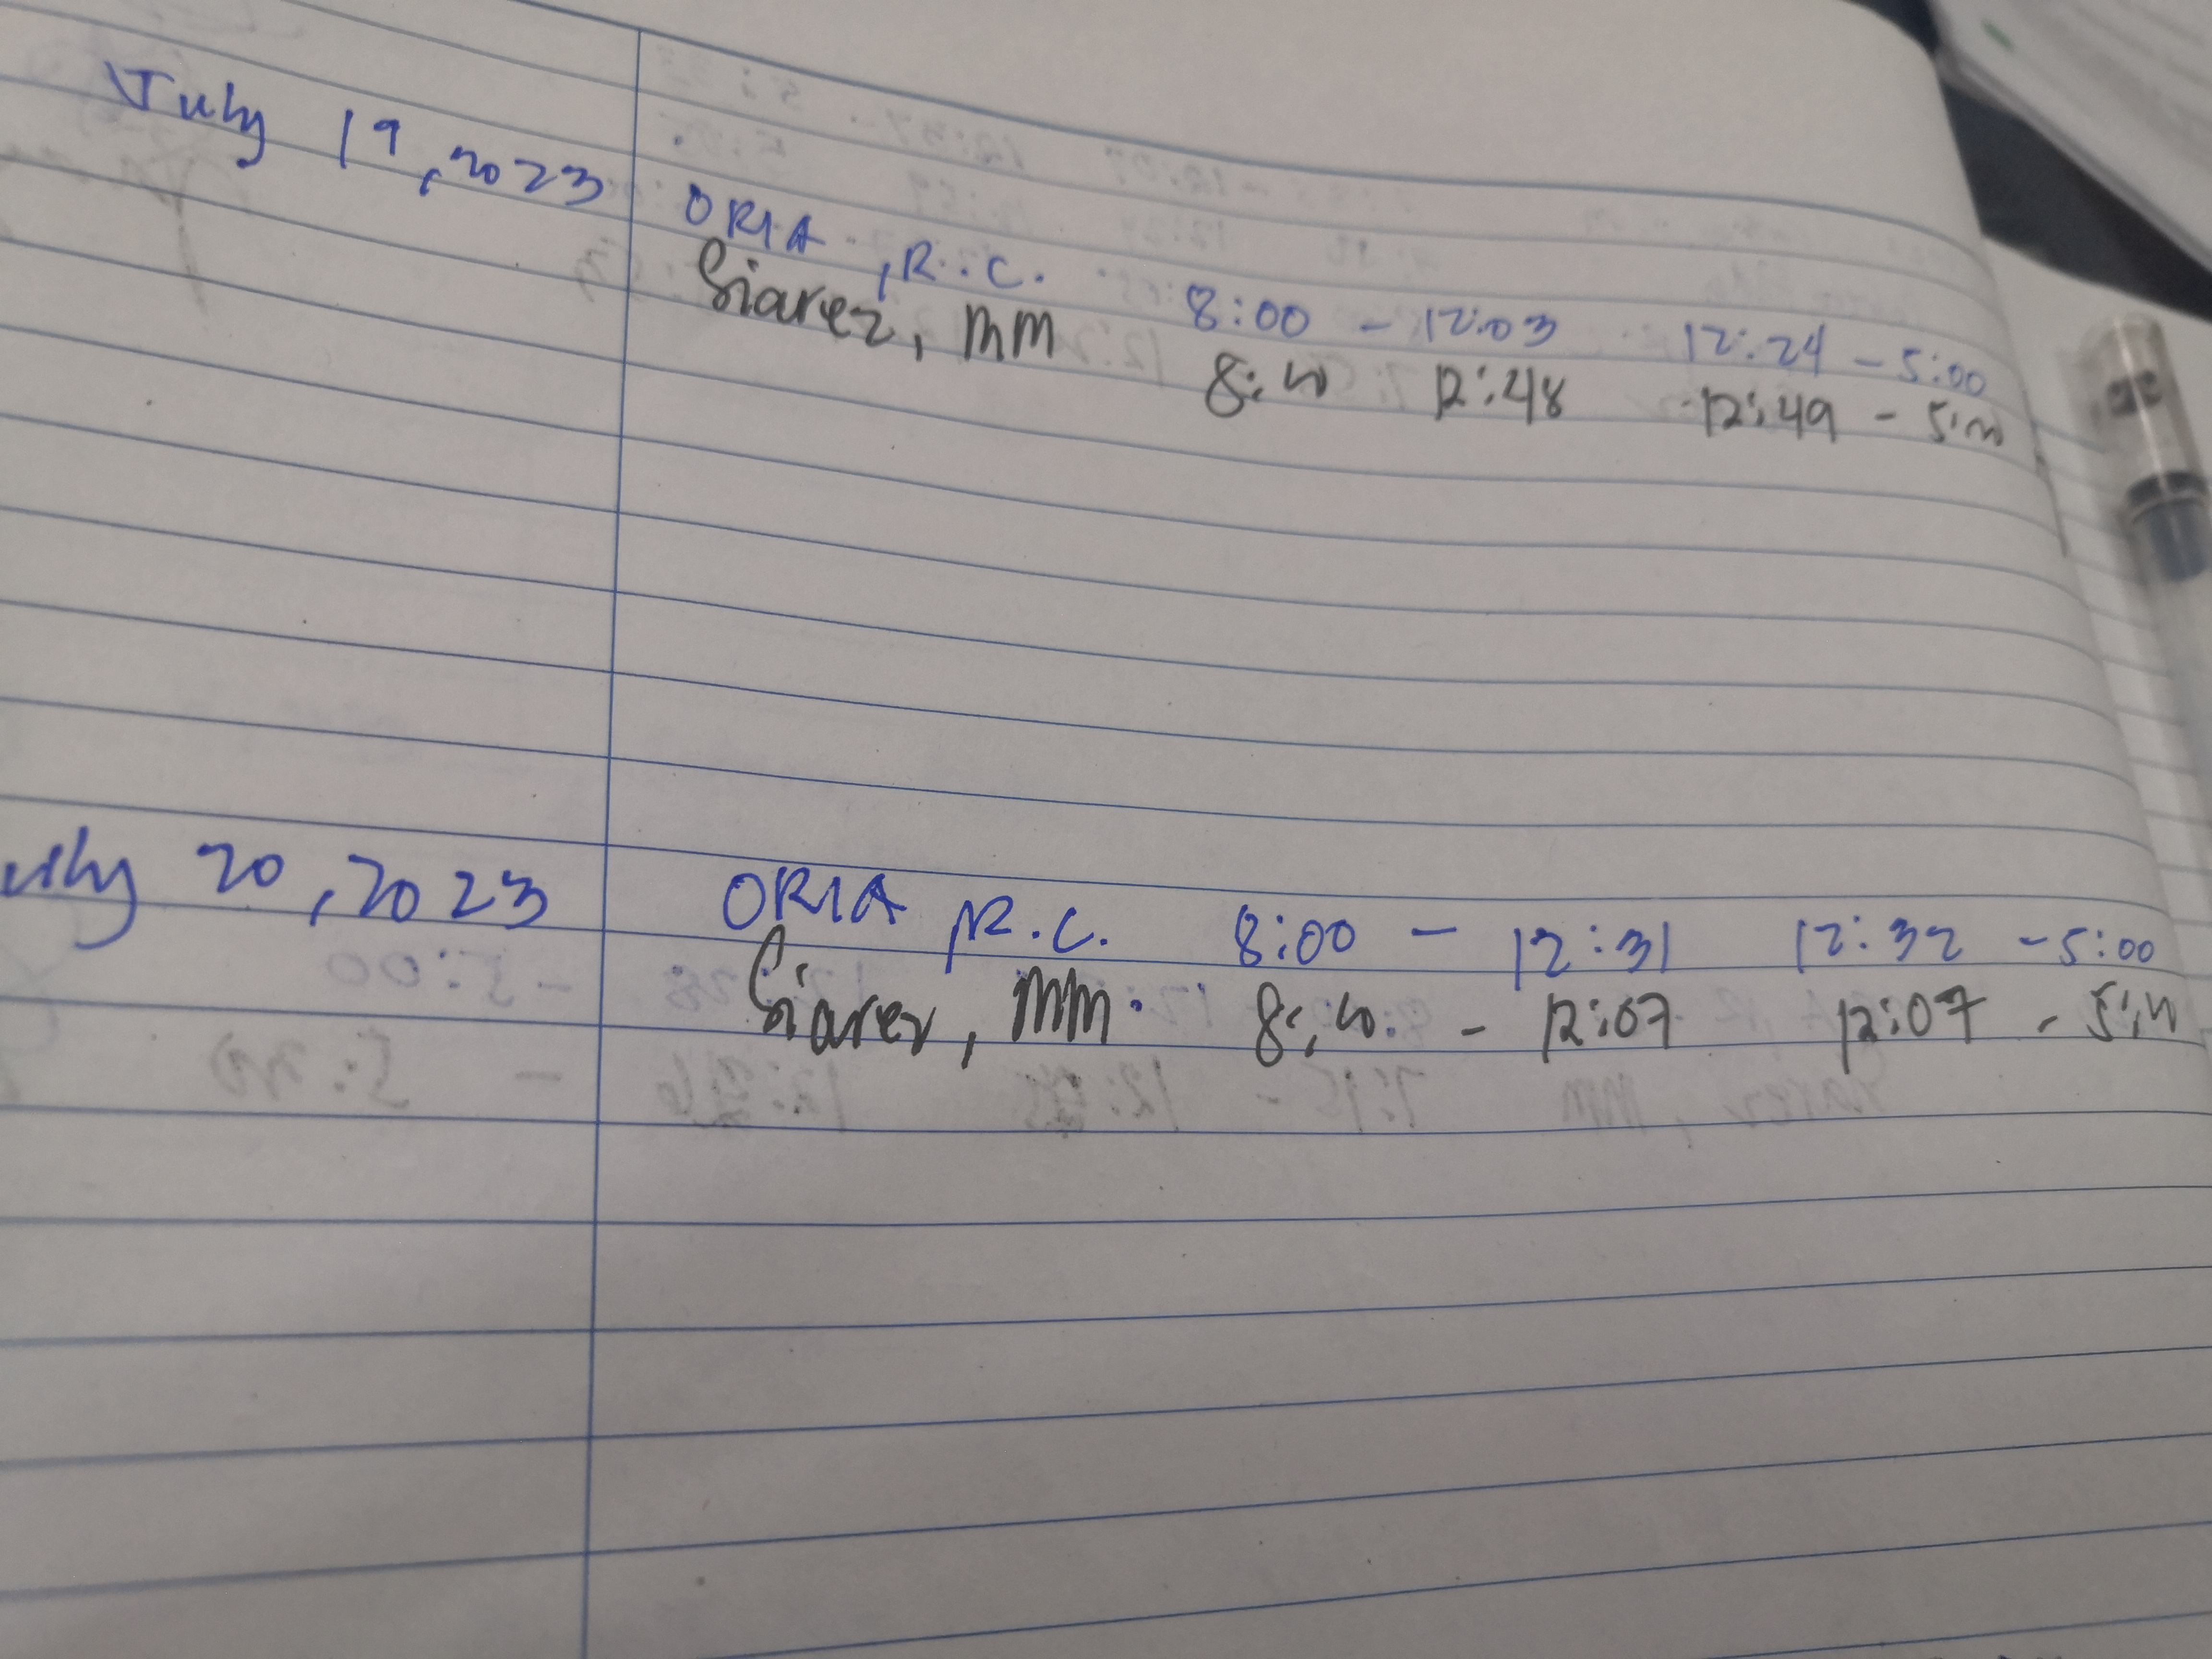 July 19, 2023
ORIA, R.C. 8:00 - 12:03 12:24 - 5:00
Siarez, MM 8:00 12:48 12:49 - 5:00
July 20, 2023
ORIA, R.C. 8:00 - 12:31 12:32 - 5:00
Siarez, MM. 8:00. - 12:07 12:07 - 5:00